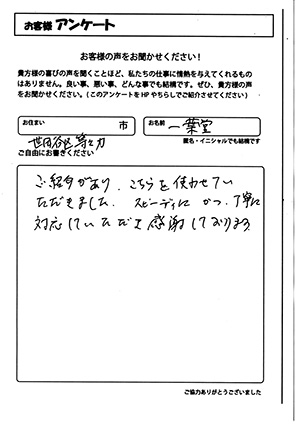 お客様 アンケート
お客様の声をお聞かせください！
貴方様の喜びの声を聞くことほど、私たちの仕事に情熱を与えてくれるもの
はありません。良い事、悪い事、どんな事でも結構です。ぜひ、貴方様の声
をお聞かせください。（このアンケートをHPやちらしでご紹介させてください）
お住まい 市
お名前 一葉堂
世田谷区等々力
匿名・イニシャルでも結構です
ご自由にお書きください
ご紹介があり、こちらを使わせてい
ただきました。スピーディに かつ、丁寧に
対応していただき感謝しております。
ご協力ありがとうございました